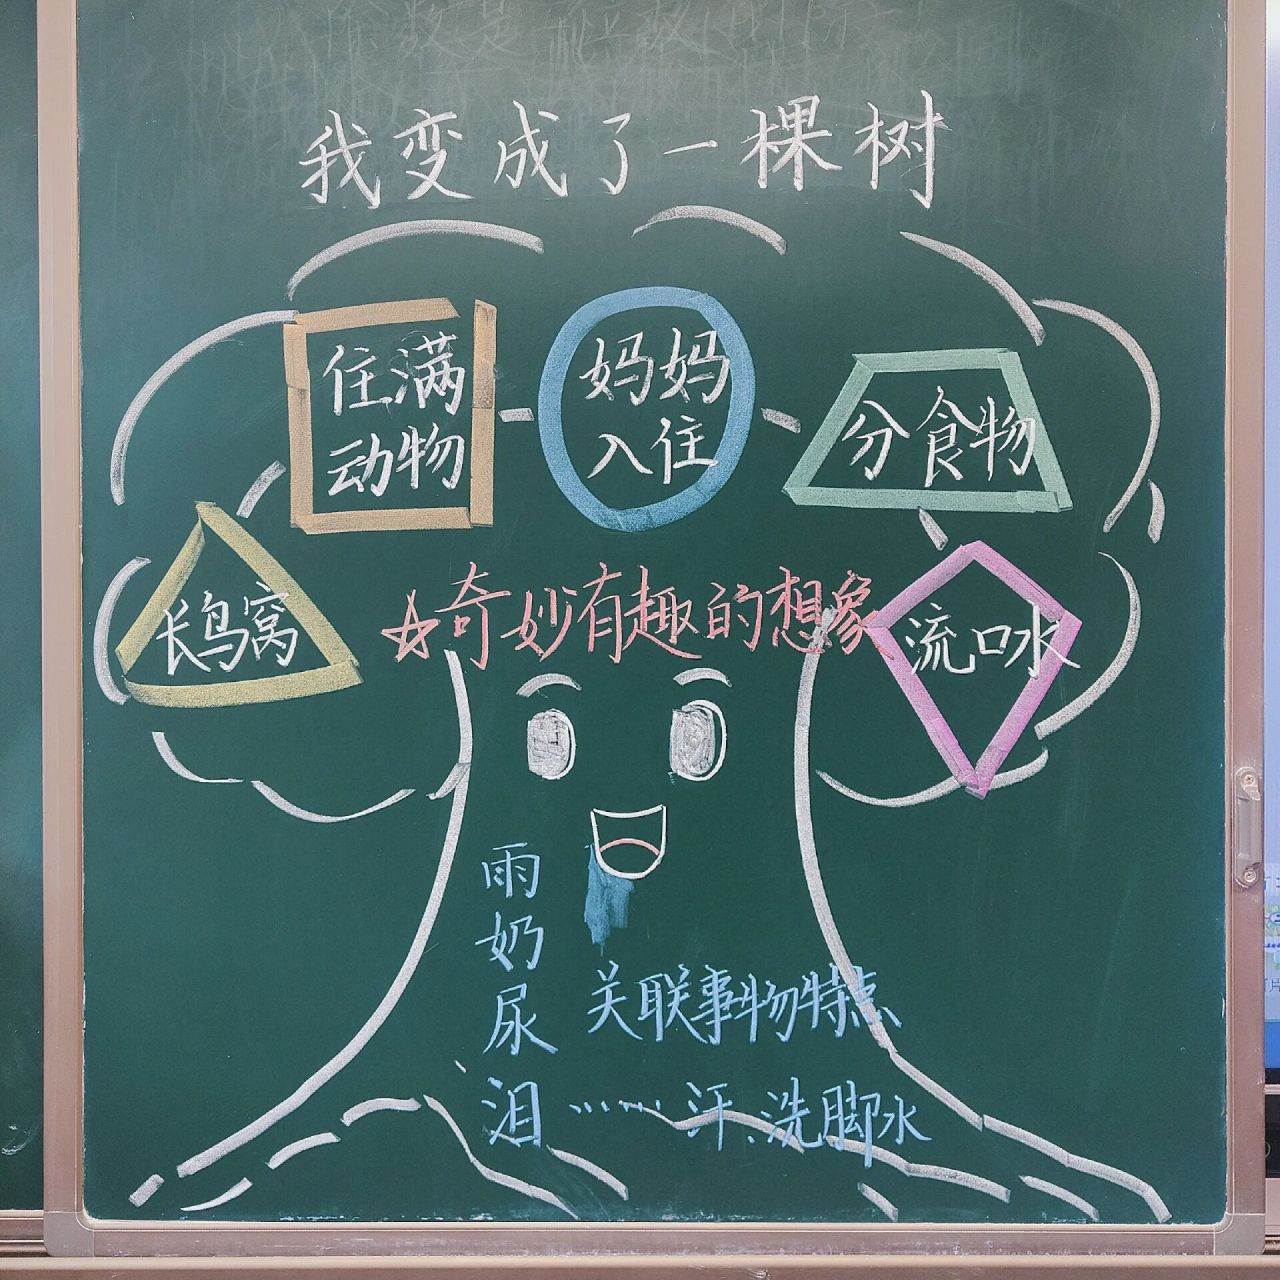 我变成了一棵树
住满
动物
妈妈
入住
分食物
长鸟窝
☆奇妙有趣的想象
流口水
雨
奶
尿
泪
关联事物特点
……汗、洗脚水